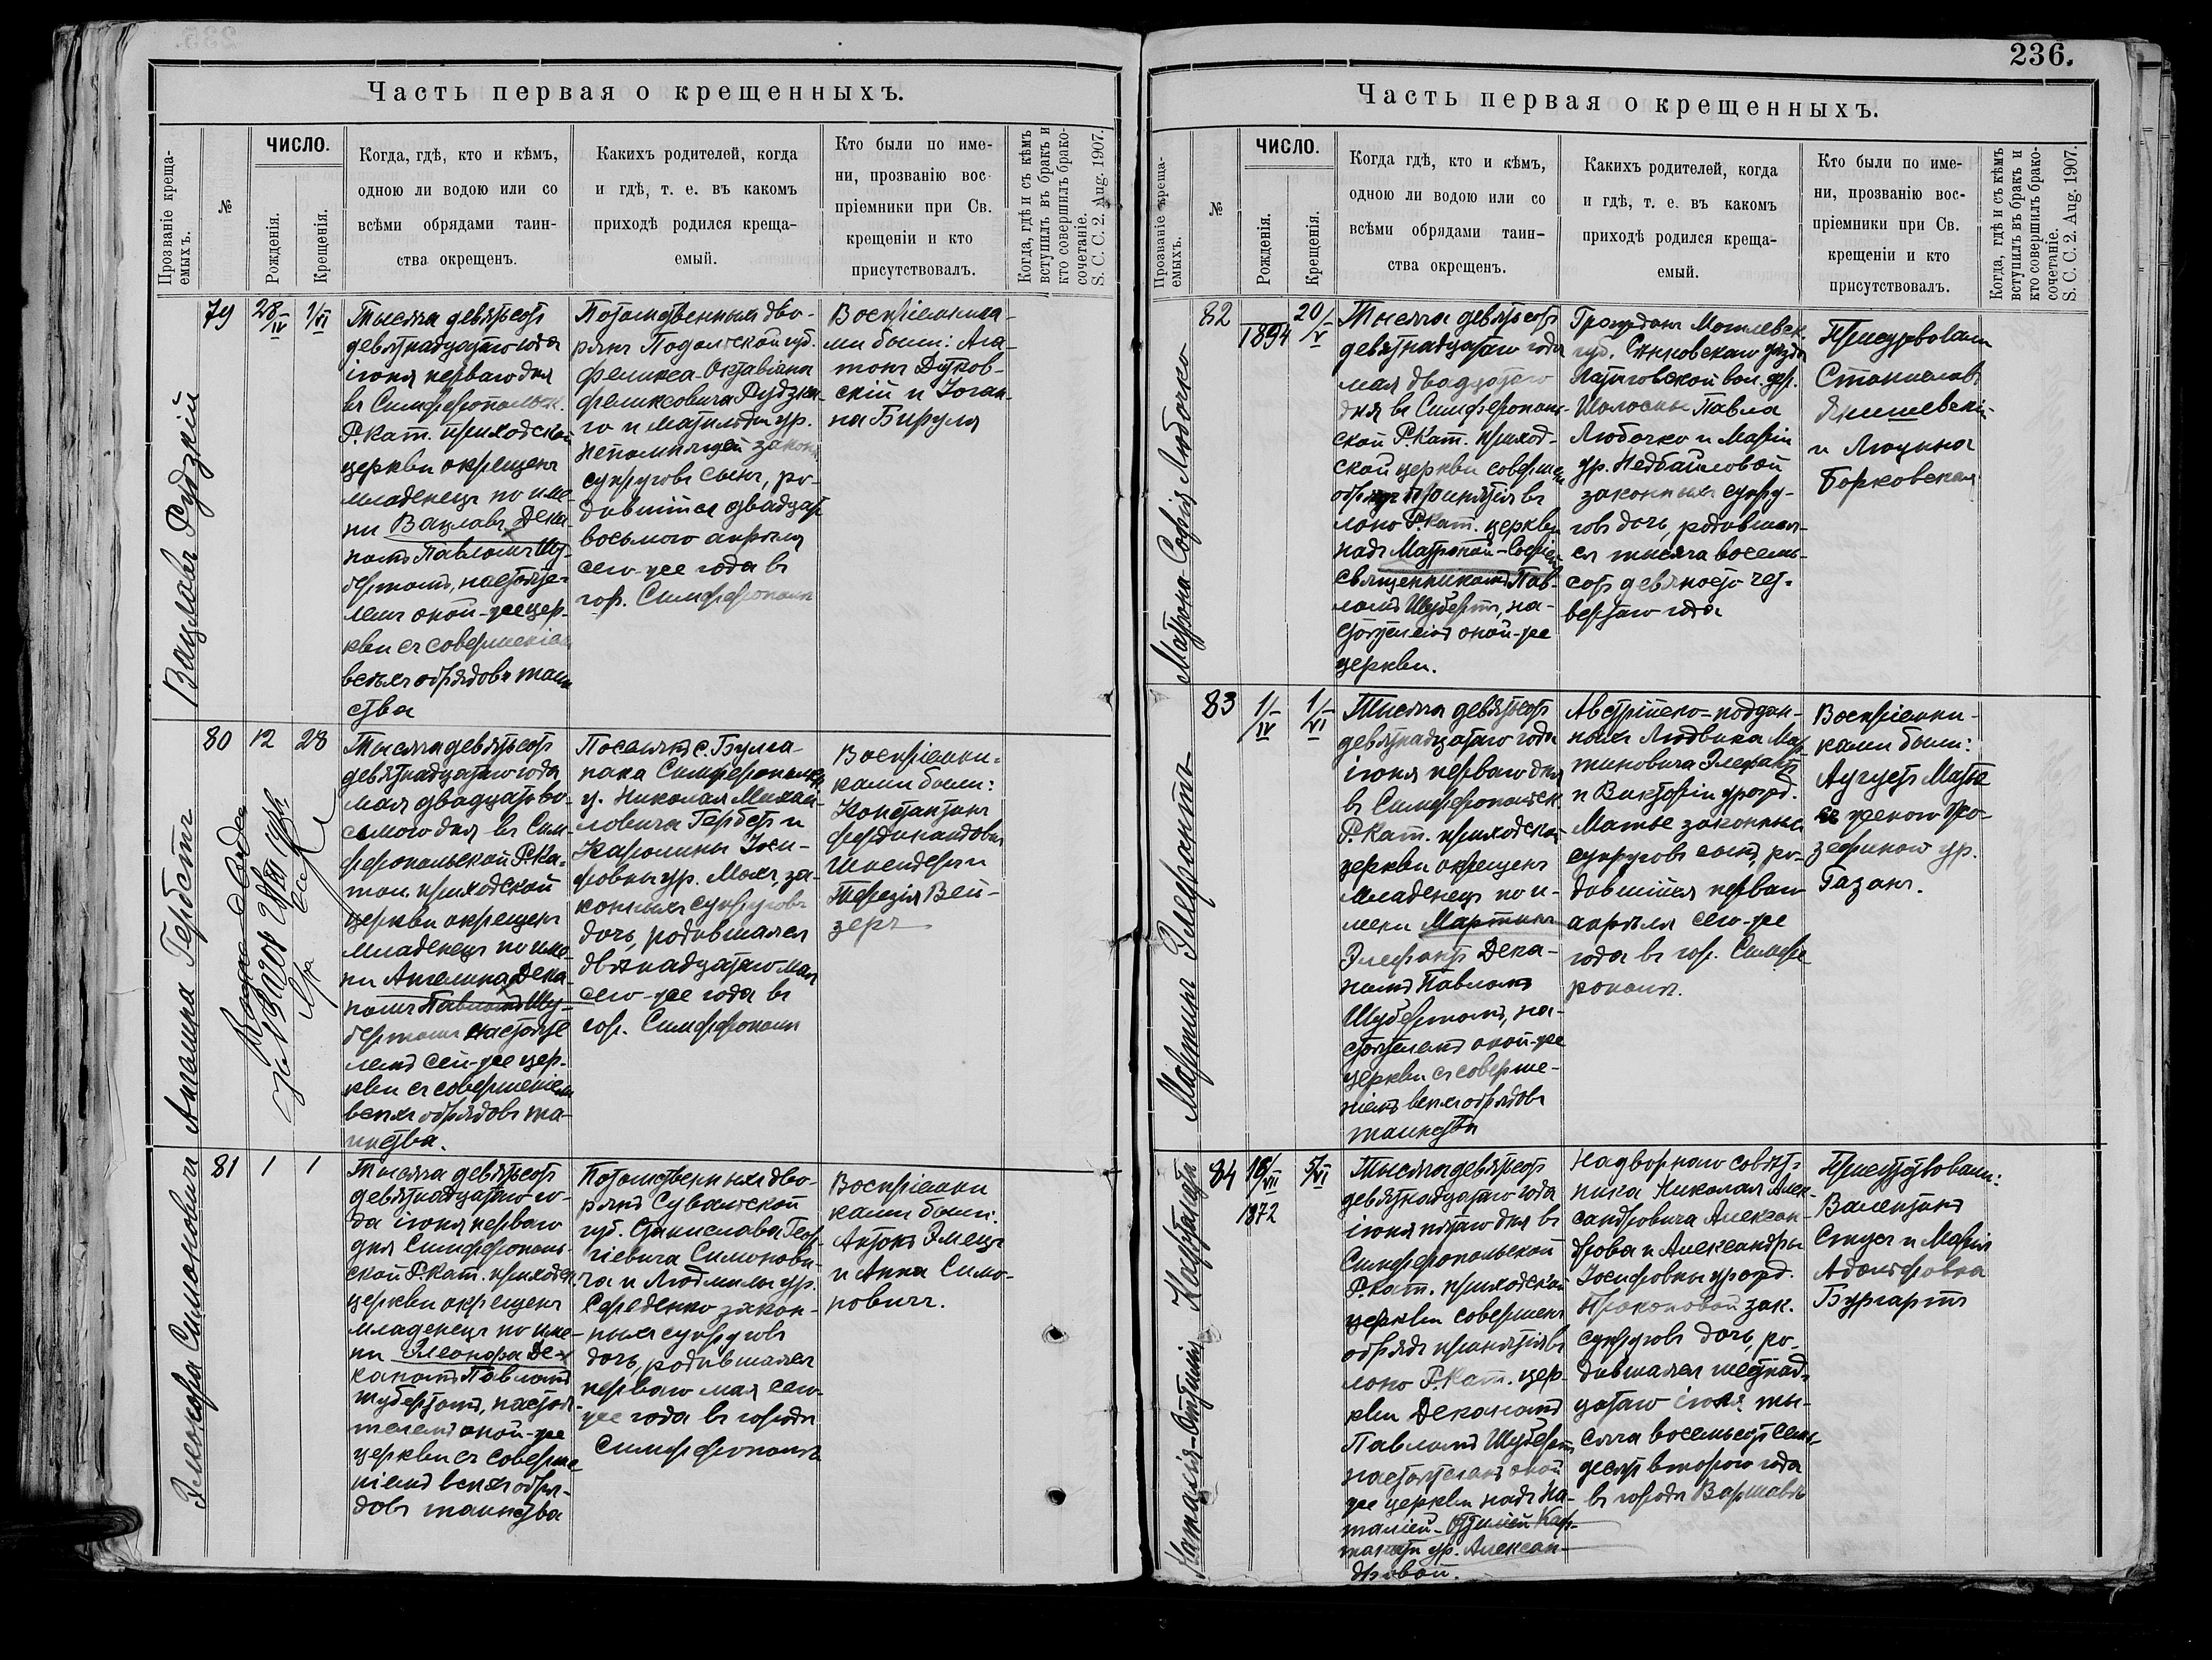 236.
Часть первая о крещенныхъ.
Прозваніе креща-
емыхъ.
№
ЧИСЛО.
Рожденія.
Крещенія.
Когда, гдѣ, кто и кѣмъ,
одною ли водою или со
всѣми обрядами таин-
ства окрещенъ.
Какихъ родителей, когда
и гдѣ, т. е. въ какомъ
приходѣ родился креща-
емый.
Кто были по име-
ни, прозванію вос-
пріемники при Св.
крещеніи и кто
присутствовалъ.
Когда, гдѣ и съ кѣмъ
вступилъ въ бракъ и
кто совершилъ брако-
сочетаніе.
S. C. C. 2. Aug. 1907.
Вацлавъ Рудзкій
79
28/IV
1/VI
Тысяча девятьсотъ
девятнадцатаго года
іюня перваго дня
въ Симферопольск.
Р.Кат. приходской
церкви окрещенъ
младенецъ по име-
ни Вацлавъ Дека-
номъ Павломъ Шу-
бертомъ, настояте-
лемъ оной-же цер-
кви съ совершеніемъ
всѣхъ обрядовъ таин
ства
Потомственныхъ дво-
рянъ Подольской губ.
Феликса-Октавіана
Феликсовича Рудзка-
го и Матильды ур.
Непомнящей закон.
супруговъ сынъ, ро-
дившійся двадцать
восьмого апрѣля
сего-же года въ
гор. Симферополѣ
Воспріемника-
ми были: Ага-
тонъ Дутков-
скій и Іоган-
на Бируля
Ангелина Гербстъ
80
12
28
Тысяча девятьсотъ
девятнадцатаго года
мая двадцать во-
сьмого дня въ Сим-
феропольской Р.Ка-
тол. приходской
церкви окрещенъ
младенецъ по име-
ни Ангелина Дека-
номъ Павломъ Шу-
бертомъ настояте
лемъ сей-же цер-
кви съ совершеніемъ
всѣхъ обрядовъ та-
инства.
Поселянъ с. Булга-
нака Симферопольск.
у. Николая Михай-
ловича Гербстъ и
Каролины Іоси-
фовны ур. Махъ, за-
конныхъ супруговъ
дочь, родившаяся
двѣнадцатаго мая
сего-же года въ
гор. Симферополѣ
Воспріемни-
ками были:
Константинъ
Фердинандовъ
Шнейдеръ и
Терезія Вей-
зеръ
Элеонора Симоновичъ
81
1
1
Тысяча девятьсотъ
девятнадцатаго го-
да іюня перваго
дня Симферополь-
ской Р.Кат. приходск.
церкви окрещенъ
младенецъ по име-
ни Элеонора Де-
каномъ Павломъ
Шубертомъ, настоя-
телемъ оной-же
церкви съ соверше
ніемъ всѣхъ обря-
довъ таинства
Потомственныхъ дво-
рянъ Сувалкской
губ. Станислава Геор-
гіевича Симонови-
ча и Людмилы ур.
Середенко закон-
ныхъ супруговъ
дочь, родившаяся
перваго мая сего-
же года въ городѣ
Симферополѣ
Воспріемни
ками были:
Антонъ Элецъ
и Анна Симо-
новичъ.
Часть первая о крещенныхъ.
Прозваніе креща-
емыхъ.
№
ЧИСЛО.
Рожденія.
Крещенія.
Когда гдѣ, кто и кѣмъ,
одною ли водою или со
всѣми обрядами таин-
ства окрещенъ.
Какихъ родителей, когда
и гдѣ, т. е. въ какомъ
приходѣ родился креща-
емый.
Кто были по име-
ни, прозванію вос-
пріемники при Св.
крещеніи и кто
присутствовалъ.
Когда, гдѣ и съ кѣмъ
вступилъ въ бракъ и
кто совершилъ брако-
сочетаніе.
S. C. C. 2. Aug. 1907.
Матрона Софія Любочко
82
1894
20/V
Тысяча девятьсотъ
девятнадцатаго года
мая двадцатаго
дня въ Симферополь-
ской Р.Кат. приход-
ской церкви соверше
обрядъ принятія въ
лоно Р.Кат. церкви
надъ Матроной-Софіей
священникомъ Пав-
ломъ Шубертъ, на-
стоятелемъ оной-же
церкви.
Гражданъ Могилевск.
губ. Сѣнновскаго уѣзда
вол. дер.
Павла
Любочко и Маріи
ур. Недбайловой
законныхъ супру-
говъ дочь, родившая-
ся тысяча восемь-
сотъ девяносто чет-
вертаго года
Присутствовали
Станиславъ
Янишевскій
и Люцина
Борковская
Мартинъ Элефантъ
83
1/IV
1/VI
Тысяча девятьсотъ
девятнадцатаго года
іюня перваго дня
въ Симферопольск.
Р.Кат. приходской
церкви окрещенъ
младенецъ по и-
мени Мартинъ
Элефантъ Дека-
номъ Павломъ
Шубертомъ, на-
стоятелемъ оной-же
церкви съ соверше-
ніемъ всѣхъ обрядовъ
таинства
Австрійско-поддан-
ныхъ Людвика Мар
тиновича Элефантъ
и Викторіи урожд.
Матье законныхъ
супруговъ сынъ, ро-
дившійся перваго
апрѣля сего-же
года въ гор. Симфе
рополѣ.
Воспріемни-
ками были:
Августъ Матье
съ женою Жо-
зефиною ур.
Газанъ.
Наталія-Оттилія
84
18/VII
1872
5/VI
Тысяча девятьсотъ
девятнадцатаго года
іюня пятаго дня въ
Симферопольской
Р.Кат. приходской
церкви совершенъ
обрядъ принятія въ
лоно Р.Кат. цер-
кви Деканомъ
Павломъ Шубертъ
настоятелемъ оной
же церкви надъ На-
таліей-Оттиліей
ур. Алексан-
дровой.
Надворнаго совѣт-
ника Николая Алек-
сандровича Алексан-
дрова и Александры
Іосифовны урожд.
Прокоповой зак.
супруговъ дочь, ро-
дившаяся шестнад-
цатаго іюля ты-
сяча восемьсотъ семь-
десятъ второго года
въ городѣ Варшавѣ
Присутствовали:
Валентинъ
и Марія
Адольфовна
Бургартъ